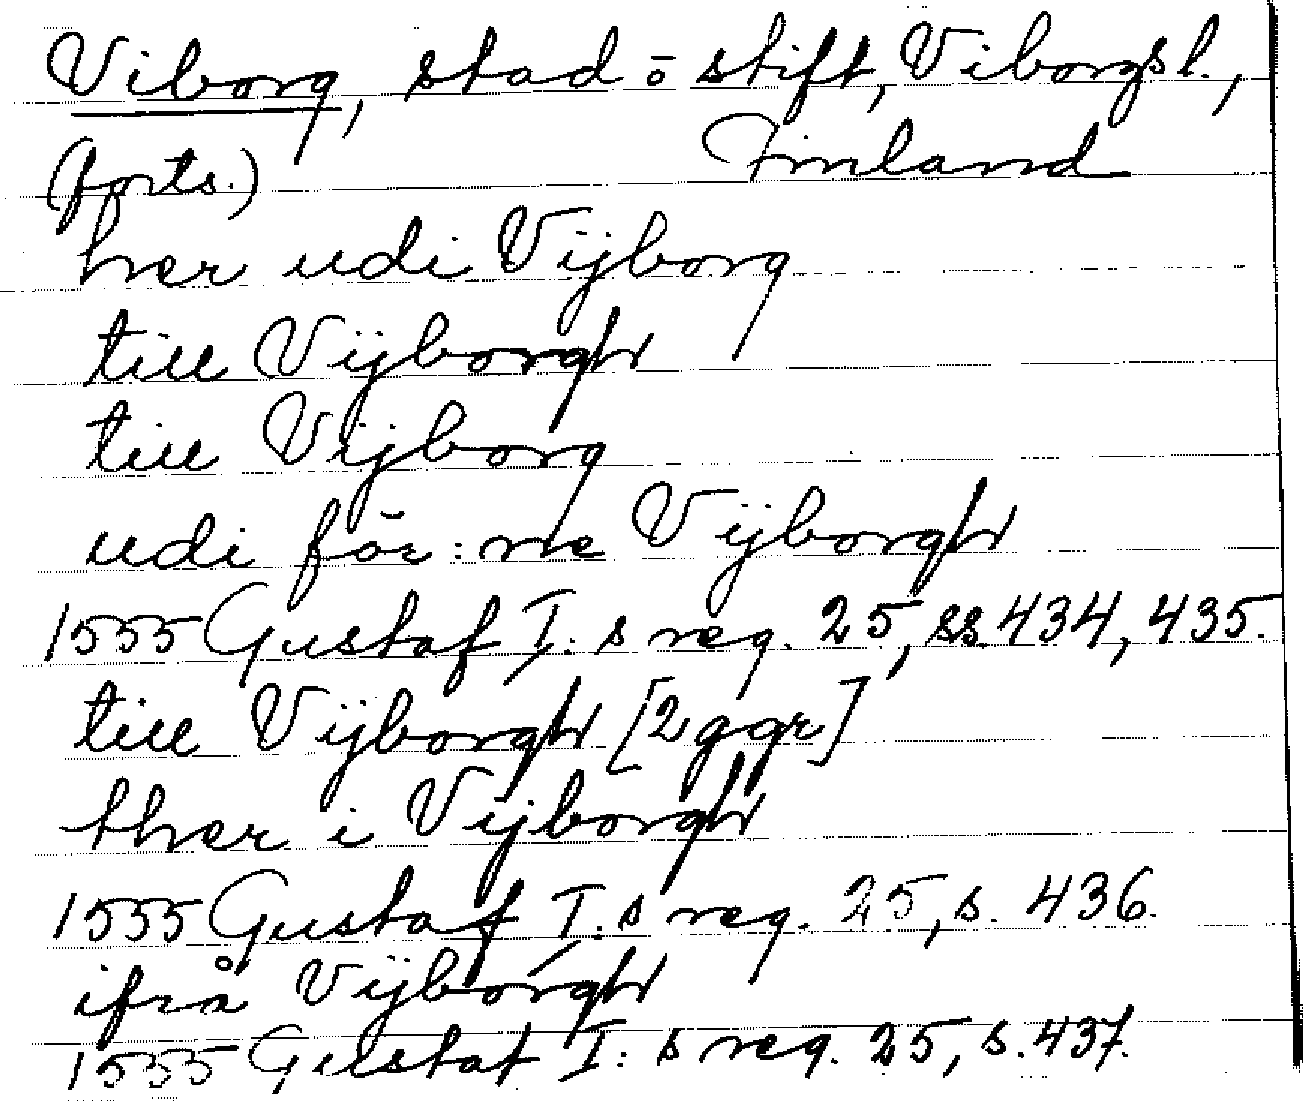 Viborg, stad o stift, Viborgs l.,
(forts.) Finland
her udi Vijborg
till Vijborgh
till Vijborg
udi för:ne Vijborgh
1555 Gustaf I:s reg. 25, ss. 434, 435.
till Vijborgh [2 ggr]
ther i Vijborgh
1555 Gustaf I:s reg. 25, s. 436.
ifrå Vijborgh
1555 Gustaf I:s reg. 25, s. 437.